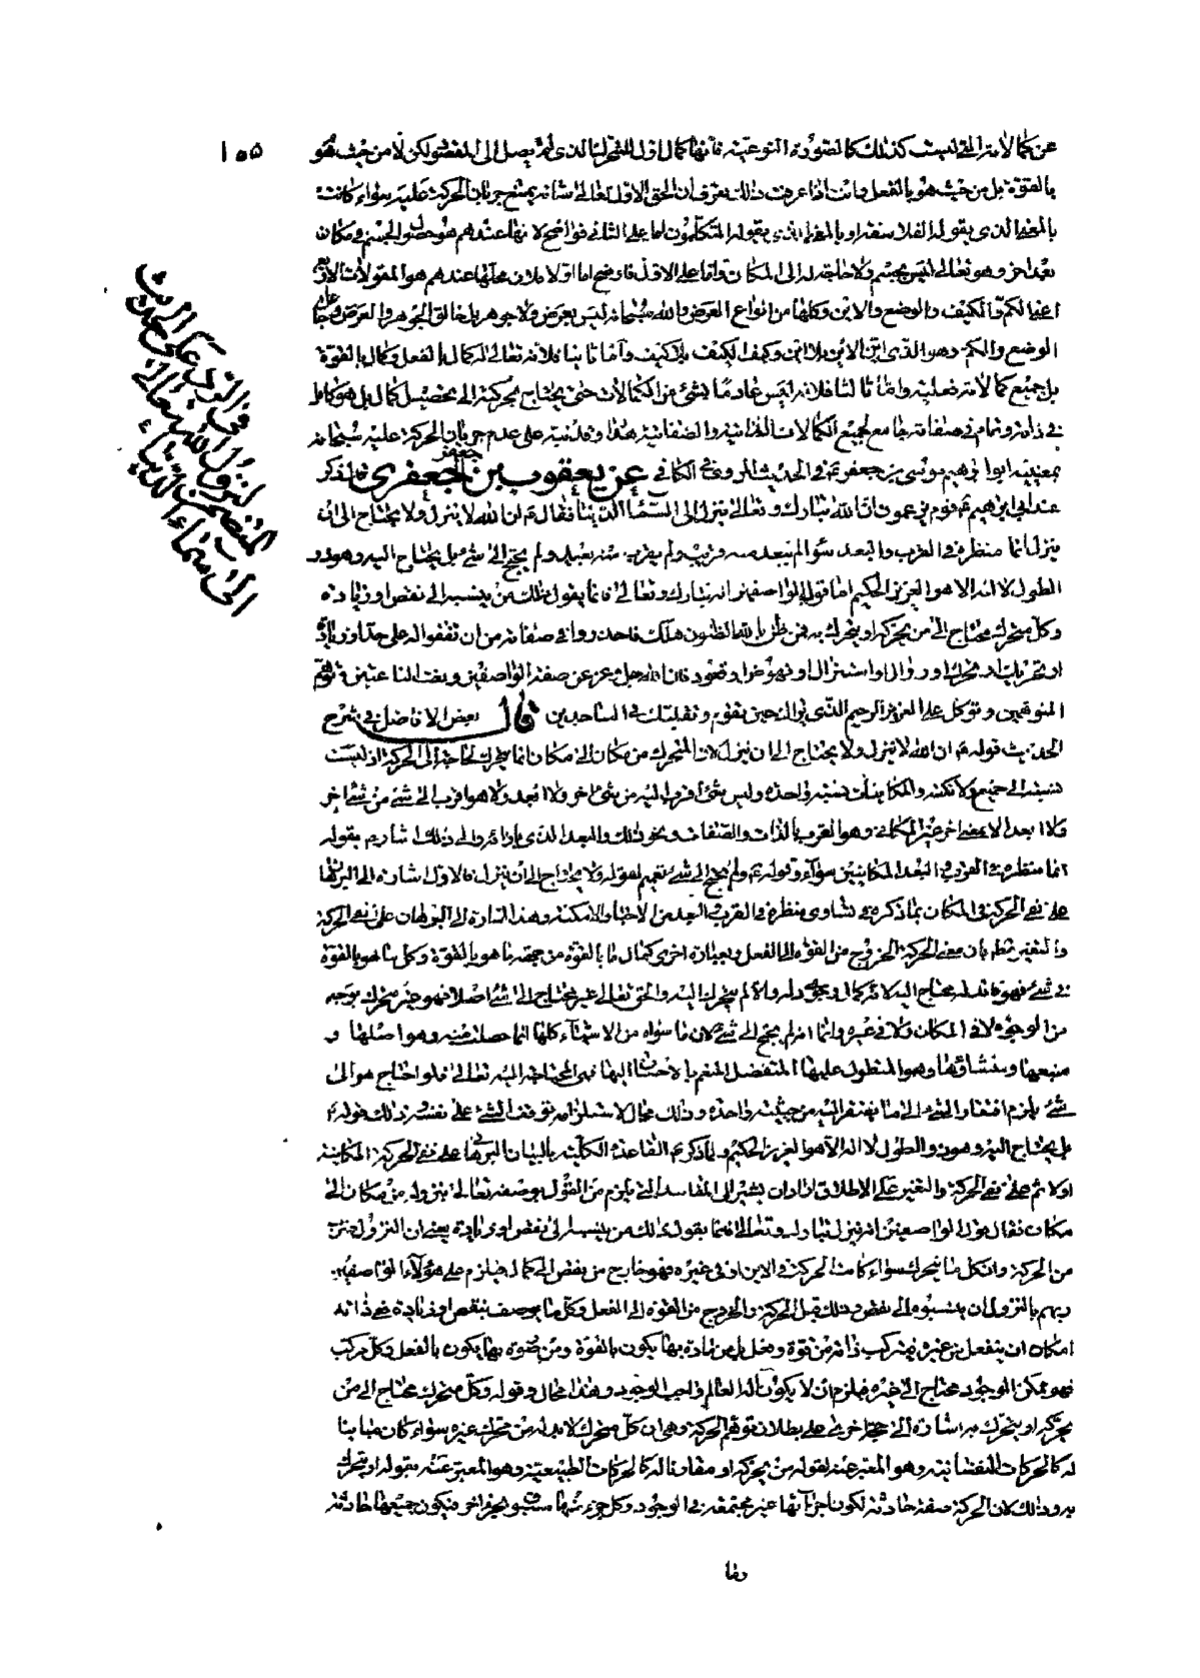 ١٥٥
عن كمالاته التي ليست كذلك كالصورة النوعية فانها كمال اول للمتحرك الذي لم يصل الى المقصد ولكن لا من حيث هو
بالقوة بل من حيث هو بالفعل وانت اذا عرفت ذلك تعرف ان الحق الاول تعالى شانه يمتنع جريان الحركة عليه سواء كانت
بالمعنى الذي يقوله الفلاسفة او بالمعنى الذي يقوله المتكلمون اما على الثاني فواضح لانها عندهم هو حصول الجسم في مكان
بعد اخر وهو تعالى ليس بجسم ولا حاجة له الى المكان واما على الاول فاوضح اما اولا فلان محلها عندهم هو المقولات الاربع
اعني الكم والكيف والوضع والاين وكلها من انواع العرض والله سبحانه ليس بعرض ولا جوهر بل خالق الجوهر والعرض وجاعل
الوضع والكم وهو الذي اين الاين بلا اين وكيف الكيف بلا كيف واما ثانيا فلانه تعالى له كمال بالفعل وكمال بالقوة
بل جميع كمالاته فعلية واما ثالثا فلانه ليس عادما لشئ من الكمالات حتى يحتاج بحركته الى تحصيل كمال بل هو كامل
في ذاته وتمام في صفاته جامع لجميع الكمالات الذاتية والصفاتية هذا وقد نبه على عدم جريان الحركة عليه سبحانه
بمعنييه ابو ابرهيم موسى بن جعفر ع في الحديث المروي في الكافي عن يعقوب بن جعفر الجعفري قال ذكر
عند ابي ابرهيم ع قوم يزعمون ان الله تبارك وتعالى ينزل الى السماء الدنيا فقال ع ان الله لا ينزل ولا يحتاج الى ان
ينزل انما منظره في القرب والبعد سواء لم يبعد منه قريب ولم يقرب منه بعيد ولم يحتج الى شئ بل يحتاج اليه وهو ذو
الطول لا اله الا هو العزيز الحكيم اما قول الواصفين انه تبارك وتعالى فانما يقول بذلك من ينسبه الى نقص او زيادة
وكل متحرك محتاج الى من يحركه او يتحرك به فمن ظن بالله الظنون هلك فاحذروا في صفاته من ان تقفوا له على حد او زيادة
او تحريك او تحرك او زوال او استنزال او نهوض او قعود فان الله جل وعز عن صفة الواصفين ونعت الناعتين وتوهم
المتوهمين وتوكل على العزيز الرحيم الذي يراك حين تقوم وتقلبك في الساجدين قال بعض الافاضل في شرح
الحديث قوله ع ان الله لا ينزل ولا يحتاج الى ان ينزل لان المتحرك من مكان الى مكان انما يتحرك لحاجة الى الحركة اذ ليست
نسبته الى جميع الامكنة والمكانيات نسبة واحدة وليس شئ اقرب اليه من شئ اخر ولا ابعد ولا هو اقرب الى شئ من شئ اخر
ولا ابعد الا بمعنى اخر غير المكاني وهو القرب بالذات والصفات ونحو ذلك والبعد الذي بازائه والى ذلك اشار ع بقوله
انما منظره في القرب والبعد المكانيين سواء وقوله ع ولم يحتج الى شئ تعميم لقوله ولا يحتاج الى ان ينزل فالاول اشارة الى البرهان
على نفي الحركة في المكان بما ذكره من تساوي منظره في القرب والبعد من الاحياز والامكنة وهذا اشارة الى البرهان على نفي الحركة
والتغير مطلقا بان معنى الحركة الخروج من القوة الى الفعل وبعبارة اخرى كمال ما بالقوة من جهة ما هو بالقوة وكل ما هو بالقوة
في شئ فهو فاقد له محتاج اليه لانه كمال وجودي له والا لم يتحرك اليه والحق تعالى غير محتاج الى شئ اصلا فهو غير متحرك بوجه
من الوجوه لا في المكان ولا في غيره وانما انه لم يحتج الى شئ لان ما سواه من الاشياء كلها انما حصلت منه وهو اصلها و
منبعها ومنشاؤها وهو المتطول عليها المتفضل المنعم بالاحسان اليها فهي المحتاجة اليه تعالى فلو احتاج هو الى
شئ يلزم افتقار الشئ الى ما يفتقر اليه من حيثية واحدة وذلك محال لاستلزامه توقف الشئ على نفسه وذلك قوله ع
بل يحتاج اليه وهو ذو الطول لا اله الا هو العزيز الحكيم ولما ذكر ع القاعدة الكلية بالبيان البرهاني على نفي الحركة المكانية
اولا ثم على نفي الحركة والتغير على الاطلاق اراد ان يشير الى المفاسد التي يلزم من القول بوصفه تعالى بنزوله من مكان الى
مكان فقال قول الواصفين انه ينزل تبارك وتعالى فانما يقول ذلك من ينسبه الى نقص او زيادة يعني ان النزول ضرب
من الحركة وان كل ما يتحرك سواء كانت الحركة في الاين او في غيره فهو خارج من نقص الى كمال فيلزم على هؤلاء الواصفين
ربهم بالنزول ان ينسبوه الى نقص وذلك قبل الحركة والخروج من القوة الى الفعل وكل ما يوصف بنقص او زيادة ففي ذاته
امكان ان ينفعل من غيره فيتركب ذاته من قوة وفعل بل من مادة بها يكون بالقوة ومن صورة بها يكون بالفعل وكل مركب
فهو ممكن الوجود محتاج الى غيره فيلزم ان لا يكون اله العالم واجب الوجود وهذا محال وقوله وكل متحرك محتاج الى من
يحركه او يتحرك به اشارة الى حجة اخرى على بطلان توهم الحركة وهي ان كل متحرك لابد له من محرك غيره سواء كان مباينا
له كالحركات النفسانية وهو المعبر عنه بقوله من يحركه او مقارنا له كالحركات الطبيعية وهو المعبر عنه بقوله او يتحرك
به وذلك لان الحركة صفة حادثة لكون اجزائها غير مجتمعة في الوجود وكل جزء منها مسبوق بجزء اخر فيكون جميعها حادثة
في الرد على الحديث
المتضمن لنزول الله تعالى
الى سماء الدنيا
وما